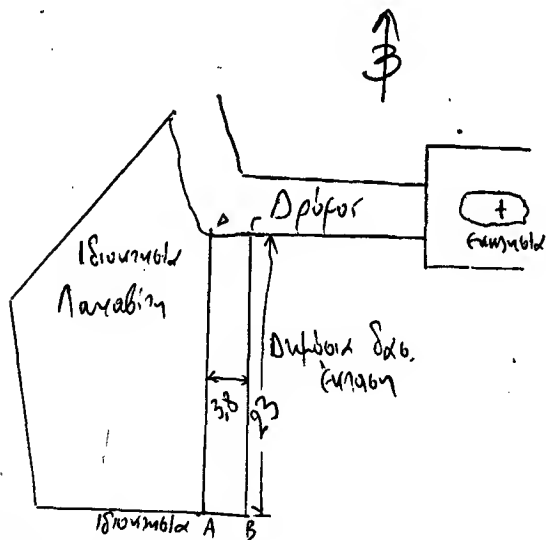 Β
Δρόμος
+
εκκλησία
Δ
Γ
Ιδιοκτησία
Δημόσια δασ.
έκταση
3,8
23
Ιδιοκτησία
Α
Β